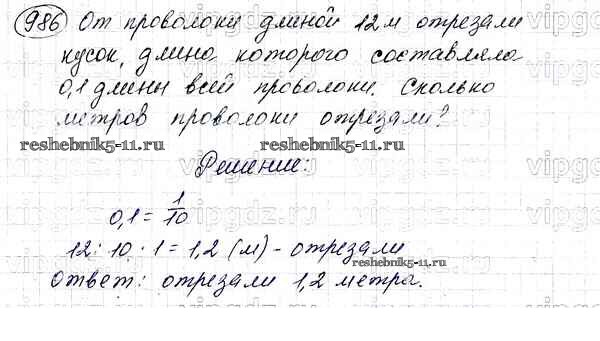 986 От проволоки длиной 12 м отрезали
кусок, длина которого составляла
0,1 длины всей проволоки. Сколько
метров проволоки отрезали?
reshebnik5-11.ru reshebnik5-11.ru
Решение:
0,1 = 1/10
12 : 10 · 1 = 1,2 (м) - отрезали
Ответ: отрезали 1,2 метра.
reshebnik5-11.ru